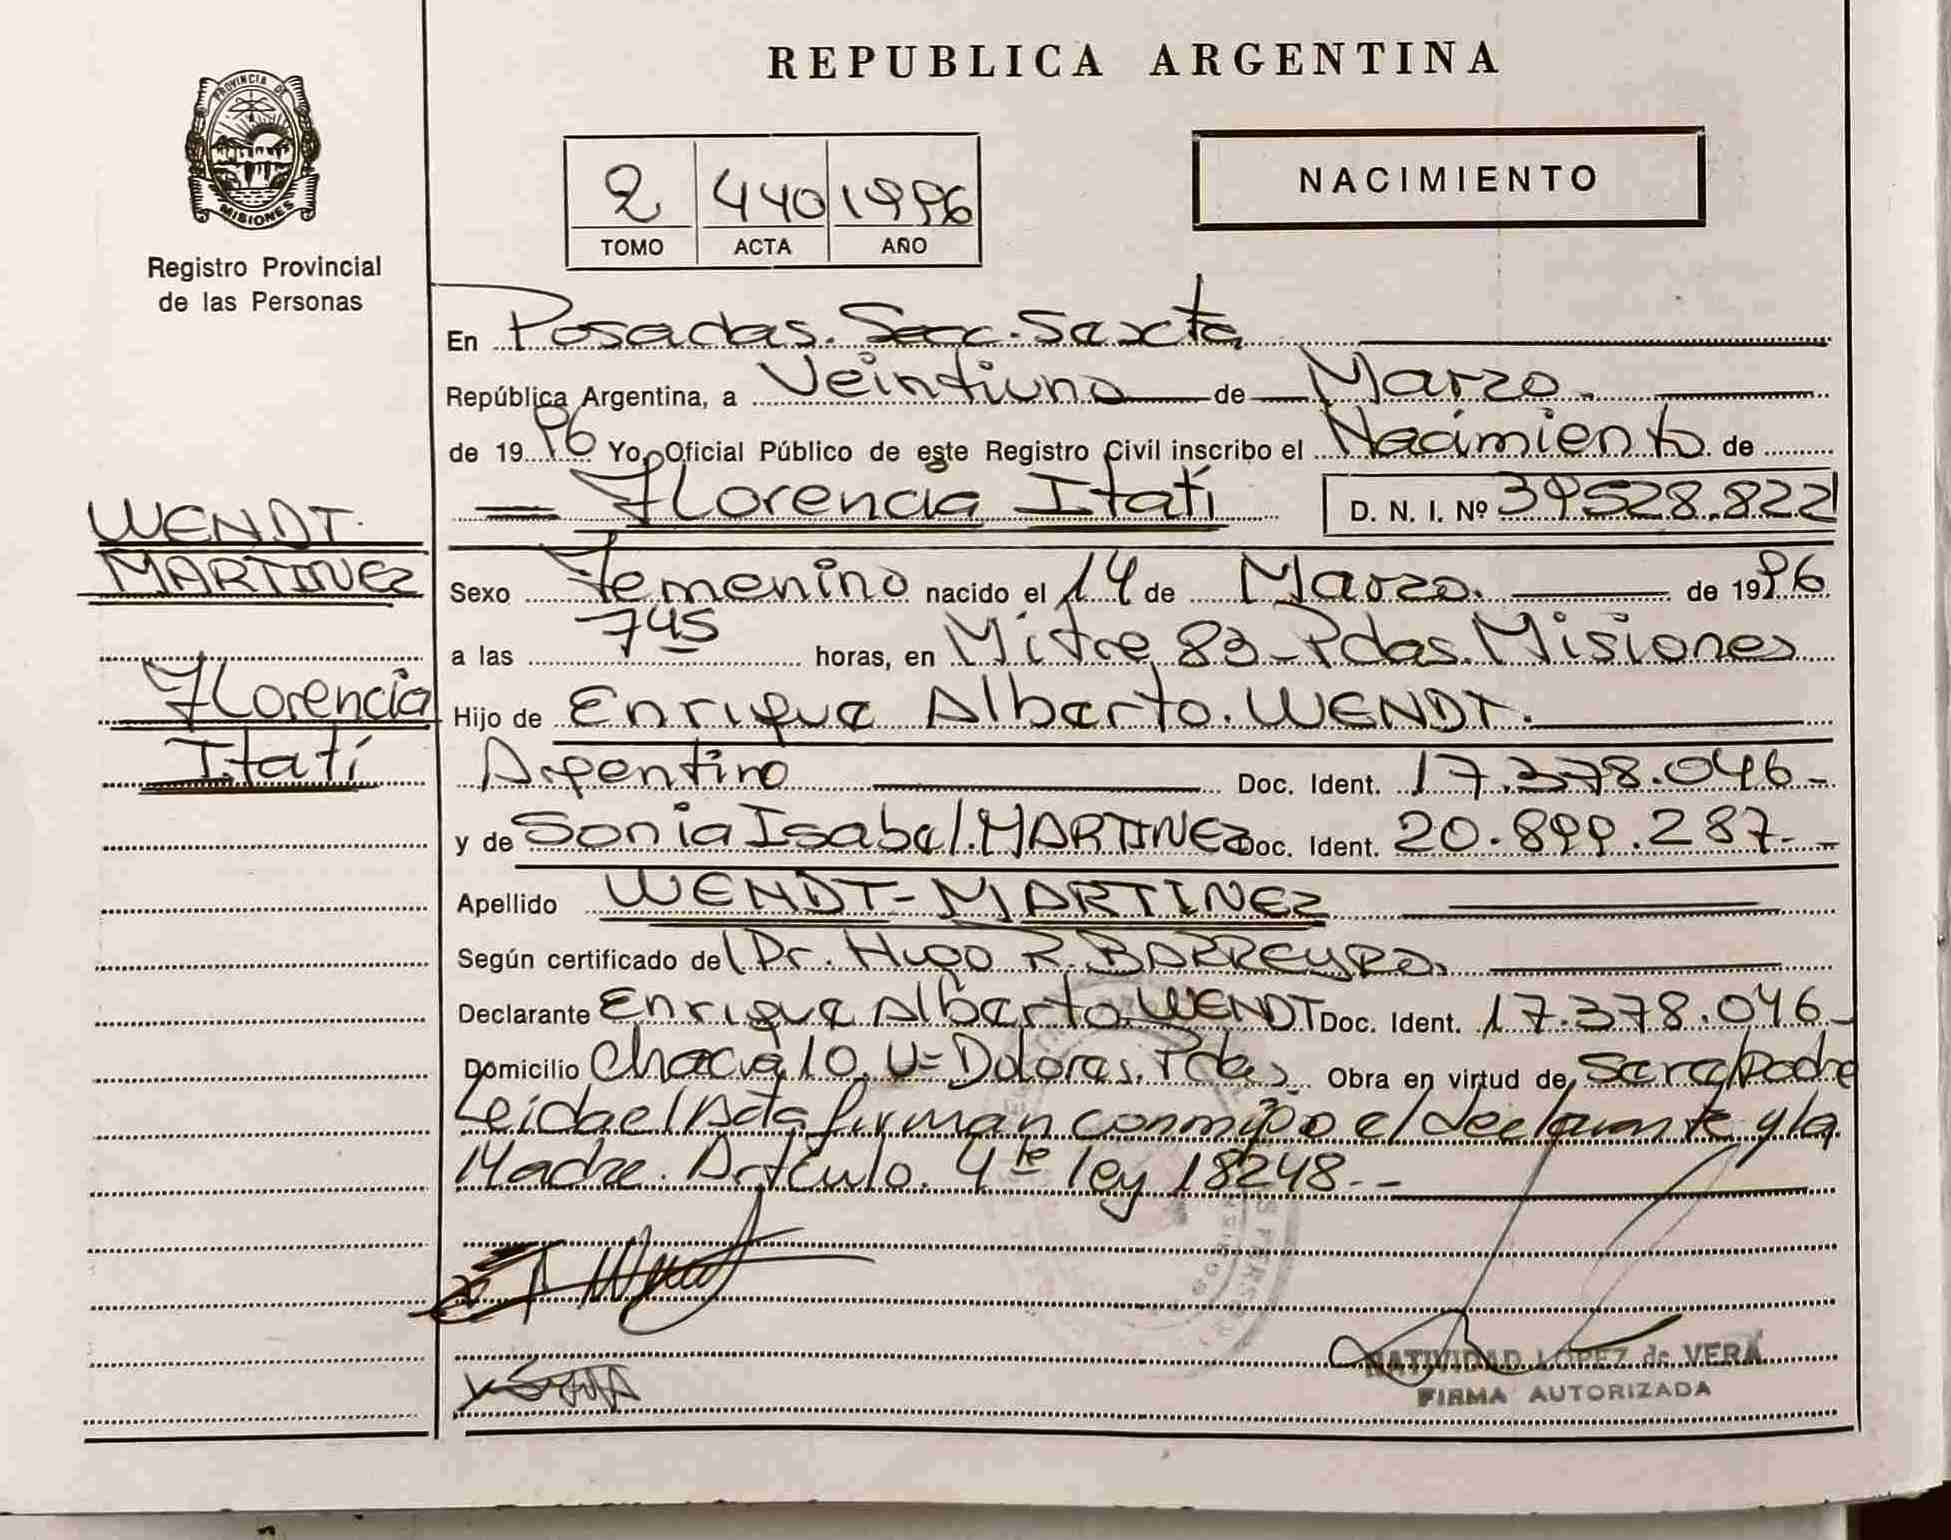 REPUBLICA ARGENTINA
PROVINCIA DE
MISIONES
Registro Provincial
de las Personas
2 440 1996
TOMO ACTA AÑO
NACIMIENTO
En Posadas. Secc. Sexta
República Argentina, a Veintiuno de Marzo.
de 1996 Yo, Oficial Público de este Registro Civil inscribo el Nacimiento de
Florencia Itatí D. N. I. Nº 39528.822
WENDT
MARTINEZ
Florencia
Itatí
Sexo Femenino nacido el 14 de Marzo. de 1996
a las 745 horas, en Mitre 83-Pdas. Misiones
Hijo de Enrique Alberto. WENDT.
Argentino Doc. Ident. 17.378.046-
y de Sonia Isabel. MARTINEZ Doc. Ident. 20.899.287.-
Apellido WENDT-MARTINEZ
Según certificado del Dr. Hugo R. BARREYRO.
Declarante Enrique Alberto. WENDT Doc. Ident. 17.378.046-
Domicilio 10. Dolores. Pdas Obra en virtud de, ser el Padre
Leida el Acta firman conmigo el declarante y la
Madre. Artículo. 4te ley 18248.-
NATIVIDAD LOPEZ de VERA
FIRMA AUTORIZADA